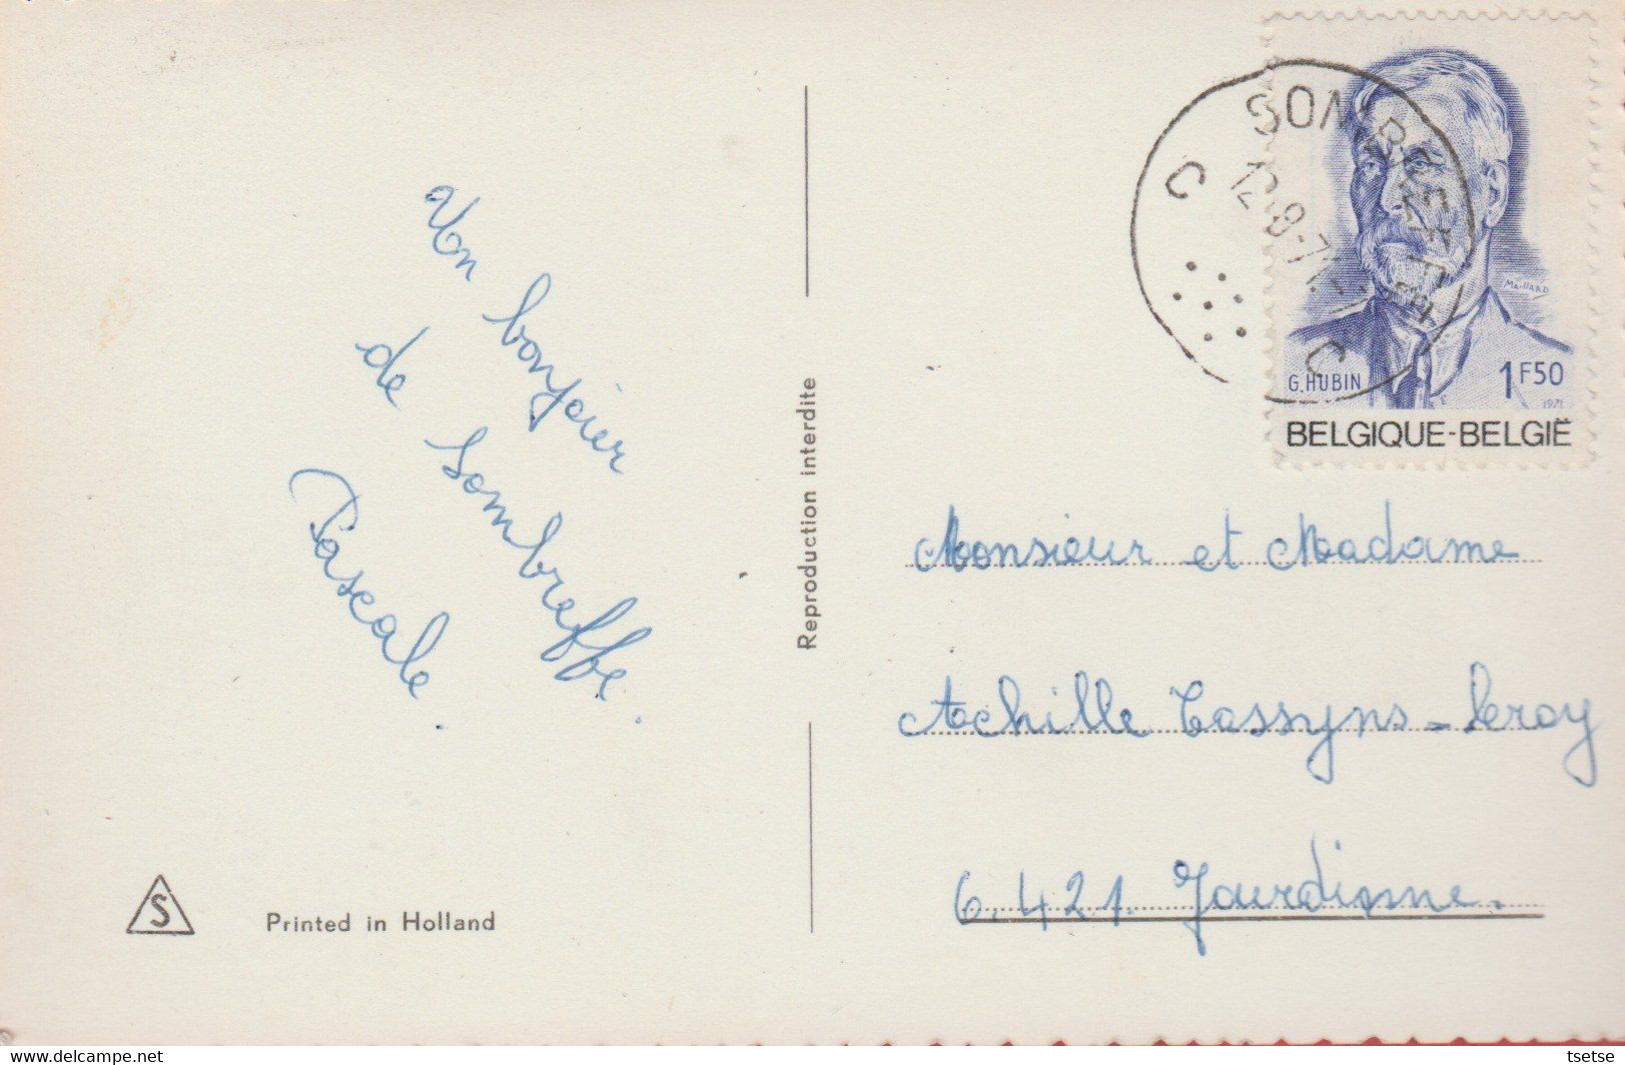 Un bonjour
de Sombreffe.
Pascale.
S
Printed in Holland
Reproduction interdite
SOMBREFFE
C C
12-8-71
MAILLARD
G.HUBIN
1F50
1971
BELGIQUE-BELGIË
Monsieur et Madame
Achille Cassyns-Leroy
6.421. Jourdinne.
www.delcampe.net
tsetse